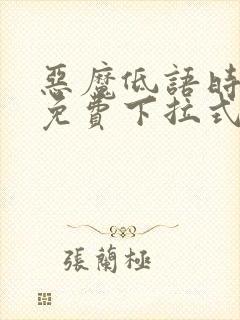 惡魔低語時
免費下拉式
張蘭極